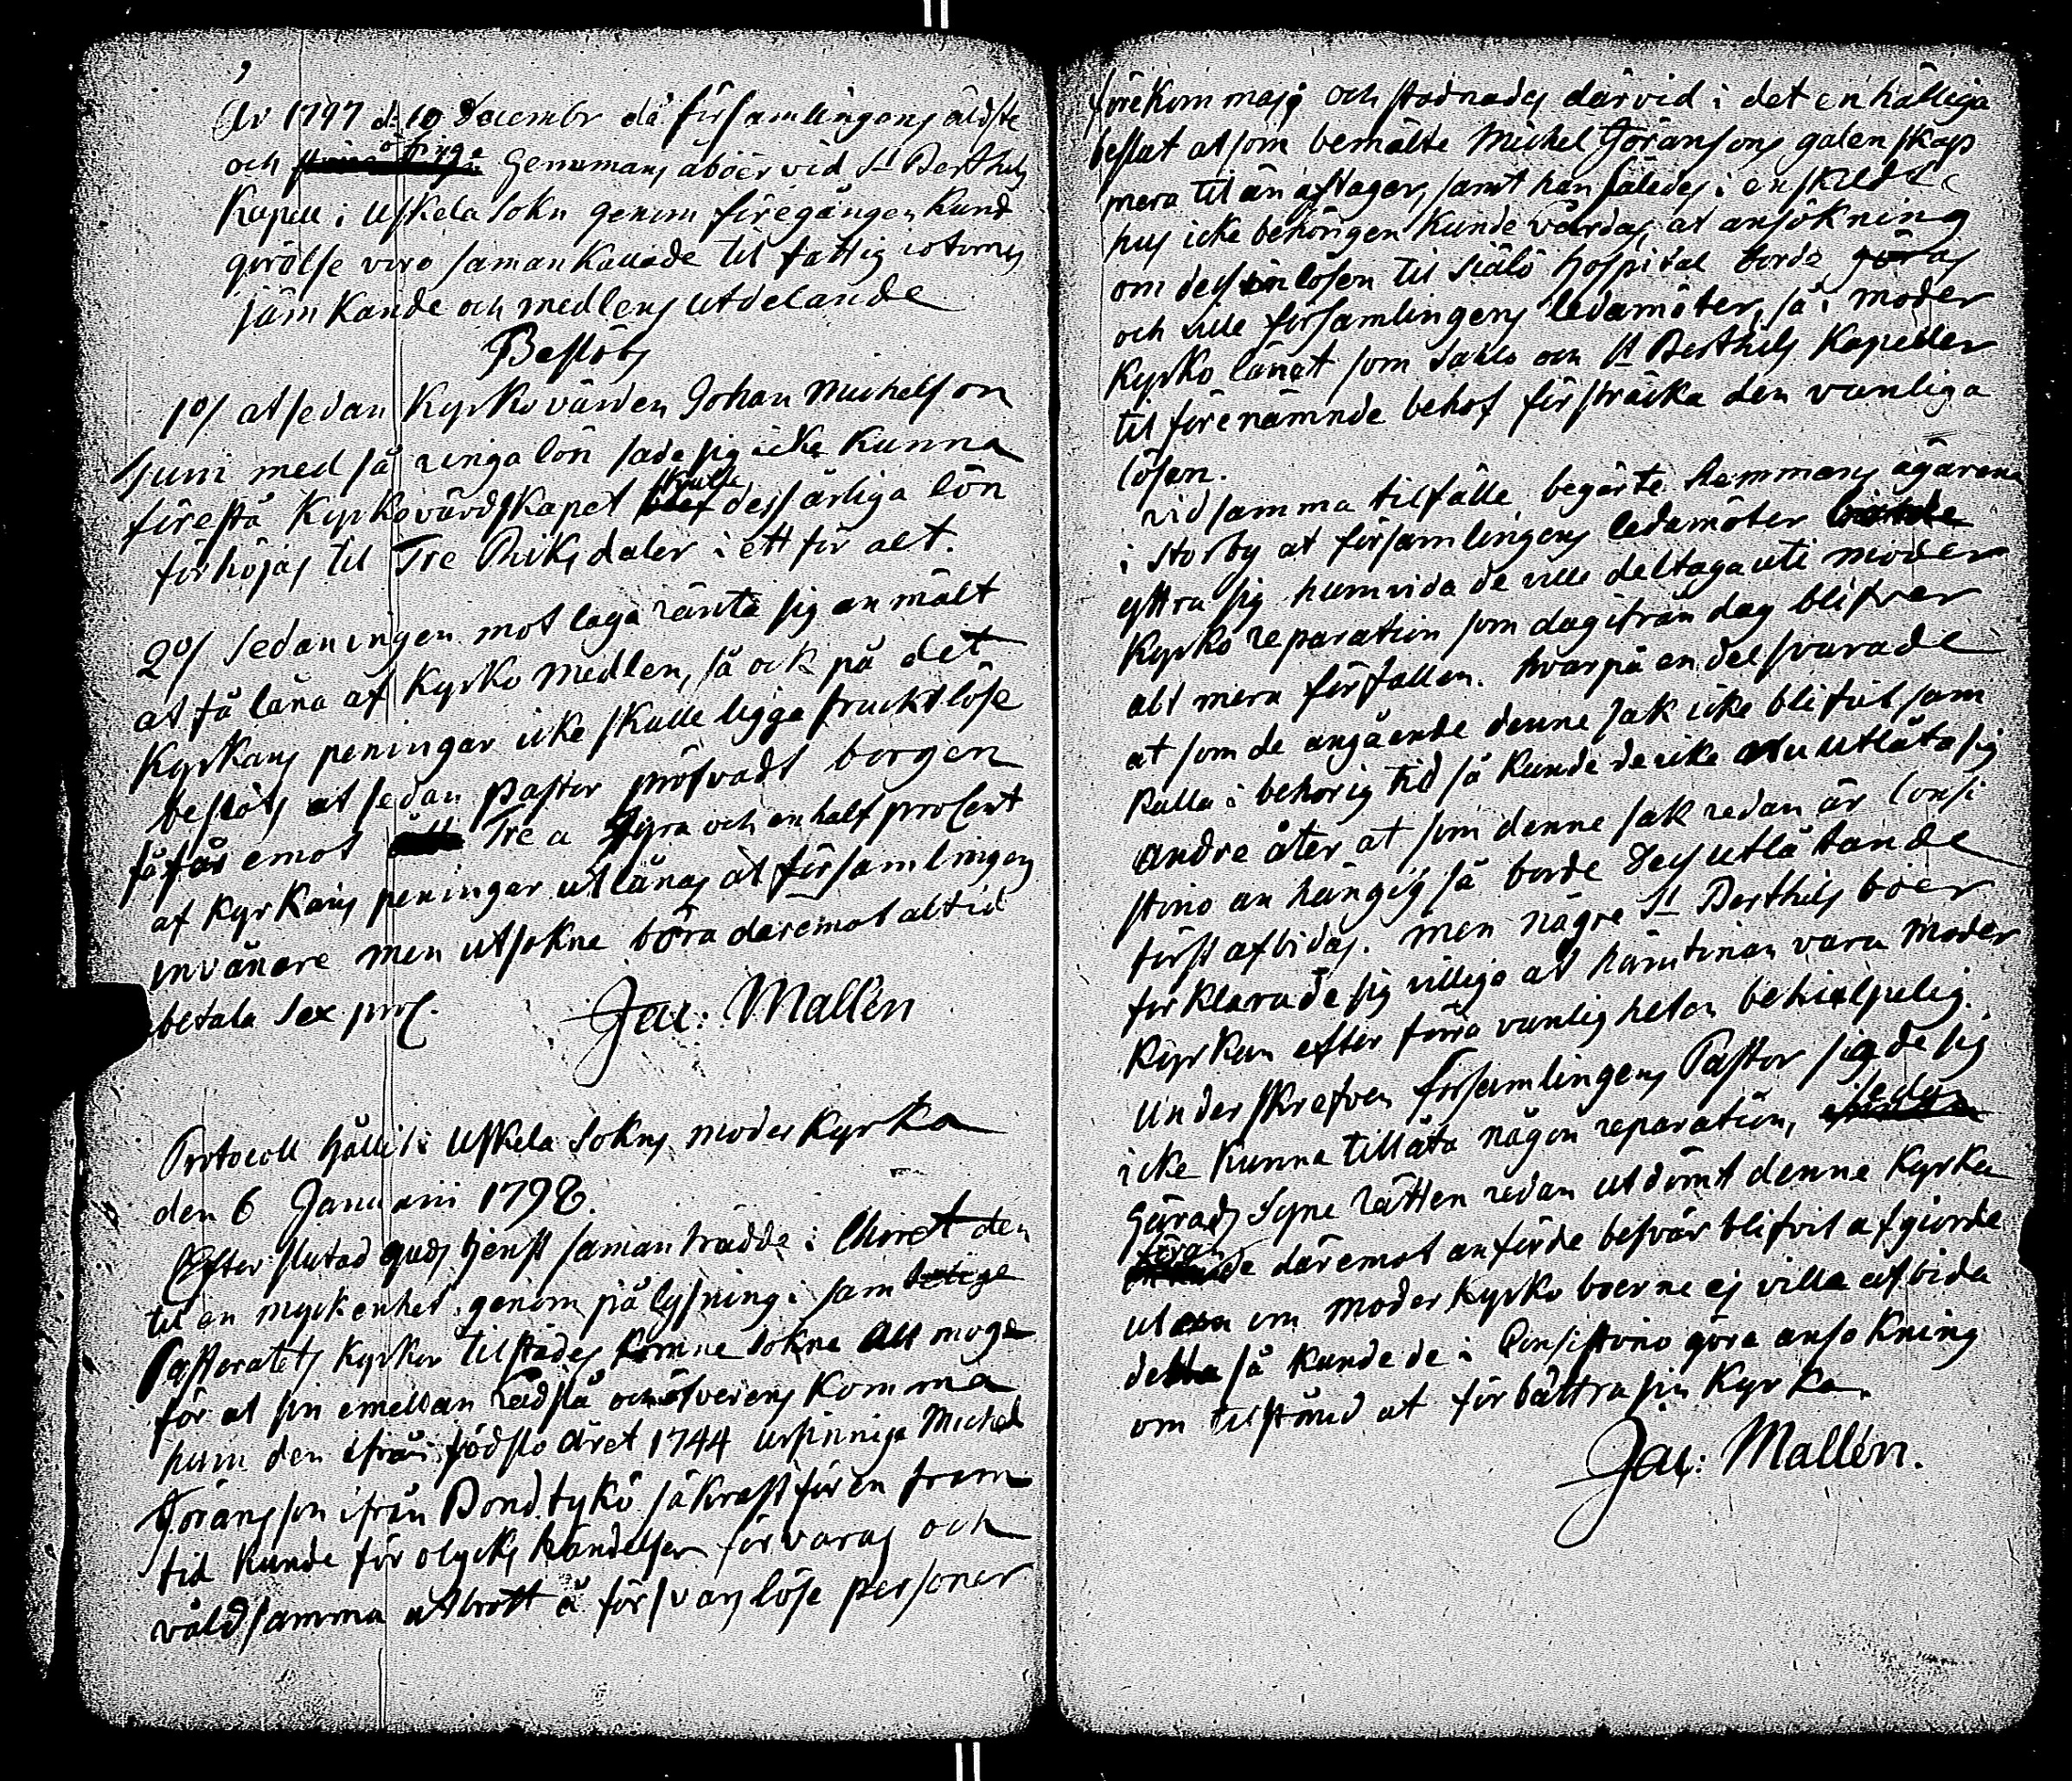 År 1797 d: 10 Decembr då församlingens äldste
och öfrige Hemmans åboer vid S:t Berthils
Kapell i Uskela Sokn genom föregången kund
görelse voro samankallade til fattig
jämkande och medlens utdelande
Beslöts
1o/ at sedan Kyrkovärden Johan Michelson
med så ringa lön sade sig icke kunna
förestå Kyrkovärdskapet skulle dess årliga lön
förhöjas til Tre Riksdaler i ett för alt.
2o/ Sedan ingen mot laga ränta sig anmält
at få låna af Kyrko medlen, så ock på det
Kyrkans peningar icke skulle ligga fruktlöse
beslöts at sedan Pastor pröfvadt borgen
så får emot Tre a Fyra och en half procent
af Kyrkans peningar utlånas åt församlingens
invånare men utsokne böra däremot altid
betala Sex proC.
Jac: Mallén
Protocoll hållit i Uskela Sokns moder Kyrka
den 6 Januarii 1798.
Efter slutad Guds tjenst samanträdde i Choret den
til en myckenhet genom pålysning i samtelige
Pastoratets Kyrkor tilstädes komne Sokne Allmoge
för at sin emellan rådslå och öfverens komma
hum den ifrån födslo året 1744 ursinniga Michel
Göransson ifrån Bondtykö säkrast för en fram
tid kunde för olycks händelser förvaras och
våldsamma utbrott å försvarslöse personer
förekommas och stadnades därvid i det enhälliga
beslut at som bemälte Michel Göransons galenskap
mera til än aftager, samt han således i enskildt
hus icke behörigen kunde vårdas, at ansökning
om dess inlösen til Siälö Hospital borde göras
och ville församlingens ledamöter, så i moder
Kyrko länet som Salo och S:t Berthils Kapeller
til förenämnde behof försträcka den vanliga
lösen.
vid samma tilfälle begärte Hemmans ägarena
i Storby at församlingens ledamöter
yttra sig humvida de ville deltaga uti moder
Kyrko reparation som dag ifrån dag blifver
alt mera förfallen. hvarpå en del svarade
at som de angående denne sak icke blifvit sam
kalla i behörig tid så kunde de icke nu utlåta sig
andre åter at som denne sak redan är Consi
storio anhängig så borde Dess utlåtande
först afbidas. men någre S:t Berthils boer
förklarade sig villiga at härutinan vara moder
Kyrkan efter förra vanligheten behielpelig.
Underskrefven församlingens Pastor sade sig
icke kunna tillåta någon reparation, sedan
Härads Syne Rätten redan utdömt denne Kyrka
förän de däremot anförde besvär blifvit afgiorde
utan om moder Kyrko boerne ej ville afbida
detta så kunde de i Consistorio göra ansökning
om tilstånd at förbättra sin Kyrka.
Jac: Mallén.